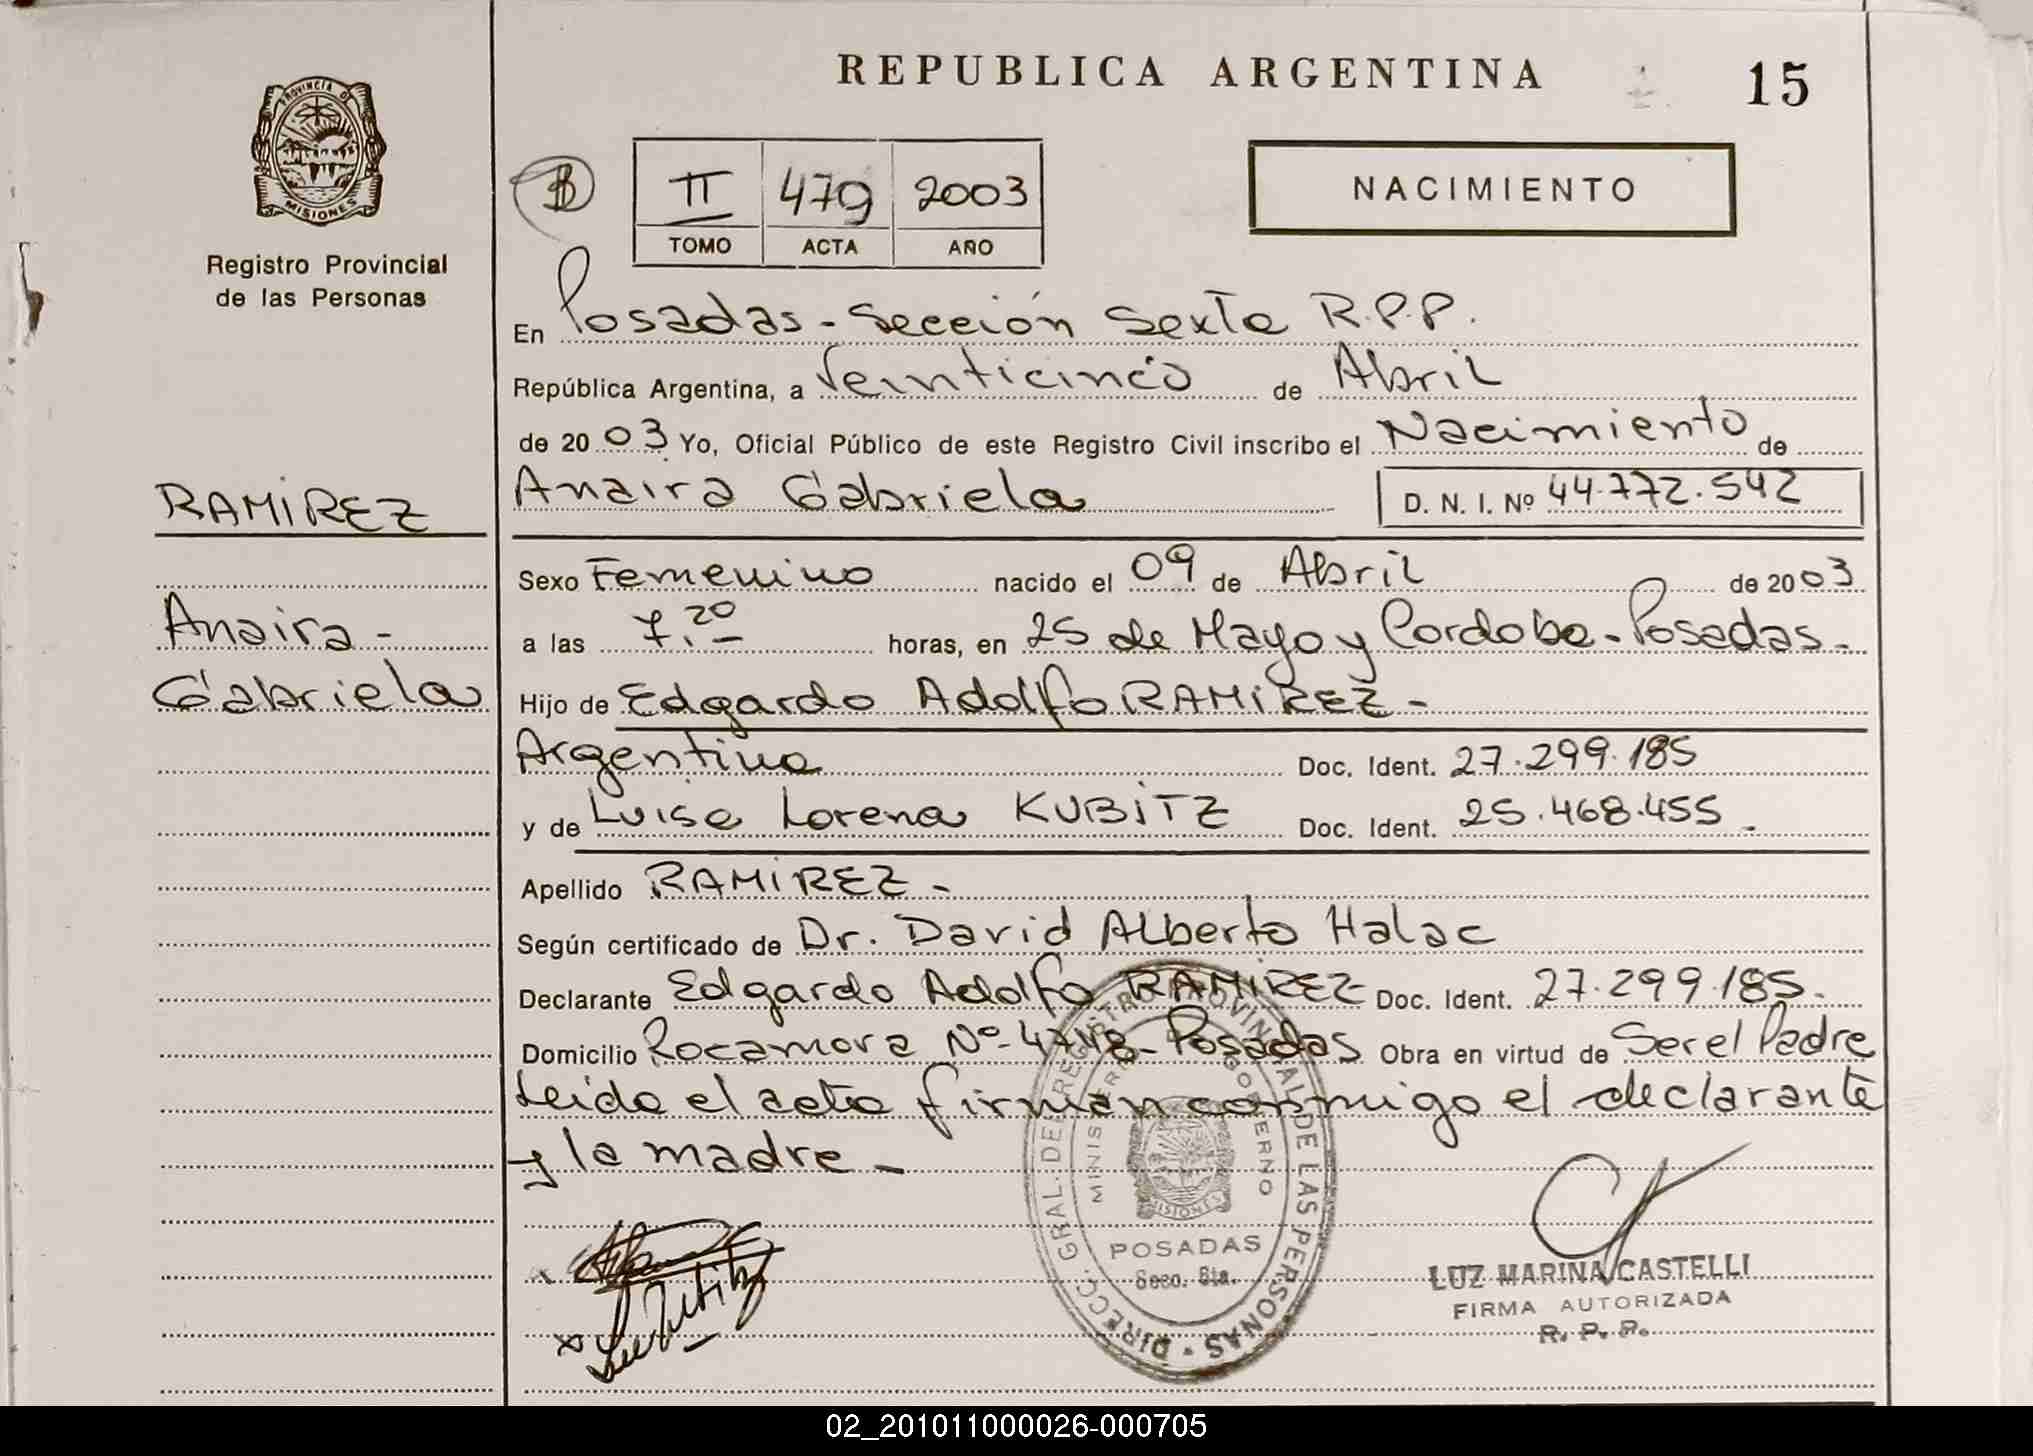 REPUBLICA ARGENTINA
15
PROVINCIA DE
MISIONES
Registro Provincial
de las Personas
B
II 479 2003
TOMO ACTA AÑO
NACIMIENTO
En Posadas - Sección Sexta R.P.P.
República Argentina, a Veinticinco de Abril
de 2003 Yo, Oficial Público de este Registro Civil inscribo el Nacimiento de
Anaira Gabriela D. N. I. Nº 44.772.542
RAMIREZ
Anaira -
Gabriela
Sexo Femenino nacido el 09 de Abril de 2003
a las 7.20 horas, en 25 de Mayo y Cordoba - Posadas -
Hijo de Edgardo Adolfo RAMIREZ -
Argentina Doc. Ident. 27.299.185
y de Luisa Lorena KUBITZ Doc. Ident. 25.468.455 -
Apellido RAMIREZ -
Según certificado de Dr. David Alberto Halac
Declarante Edgardo Adolfo RAMIREZ Doc. Ident. 27.299.185.
Domicilio Rocamora Nº 4748 - Posadas Obra en virtud de Ser el Padre
Leida el acta firman conmigo el declarante
y la madre -
DIRECC. GRAL. DEL REGISTRO PROVINCIAL DE LAS PERSONAS
MINISTERIO GOBIERNO
MISIONES
POSADAS
Secc. 6ta.
LUZ MARINA CASTELLI
FIRMA AUTORIZADA
R. P. P.
02_201011000026-000705